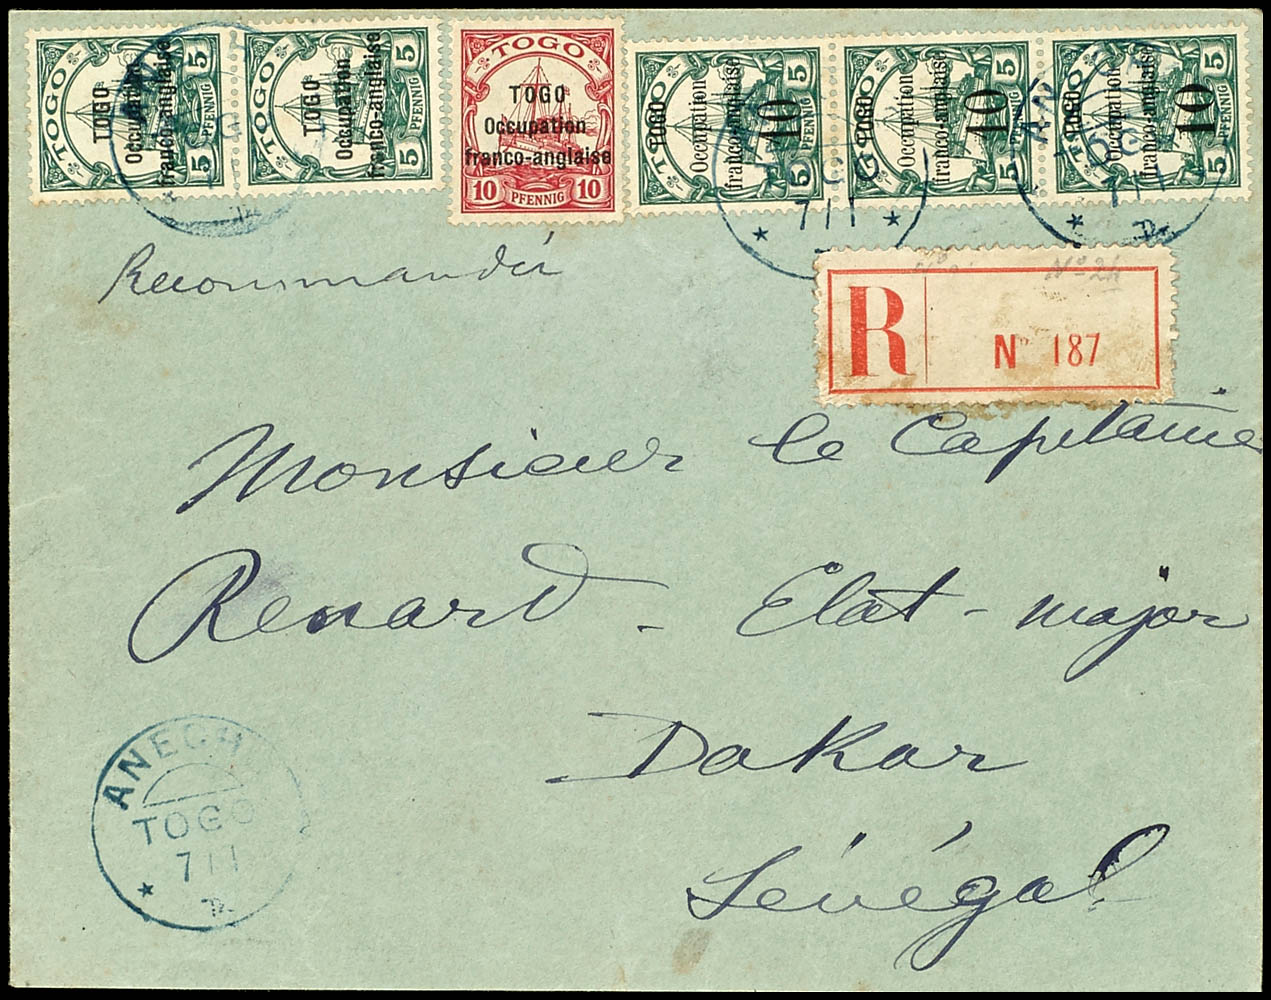 TOGO
5 PFENNIG 5
TOGO
Occupation
franco-anglaise
TOGO
5 PFENNIG 5
TOGO
Occupation
franco-anglaise
TOGO
TOGO
Occupation
franco-anglaise
10 PFENNIG 10
5 PFENNIG 5
TOGO
Occupation
franco-anglaise
10
5 PFENNIG 5
TOGO
Occupation
franco-anglaise
10
5 PFENNIG 5
TOGO
Occupation
franco-anglaise
10
AN
7 1 1
7 1 1
Recommandée
R
N° 24
N° 187
Monsieur le Capitaine
Renard - Etat-major
Dakar
Sénégal
ANECH
TOGO
7 1 1